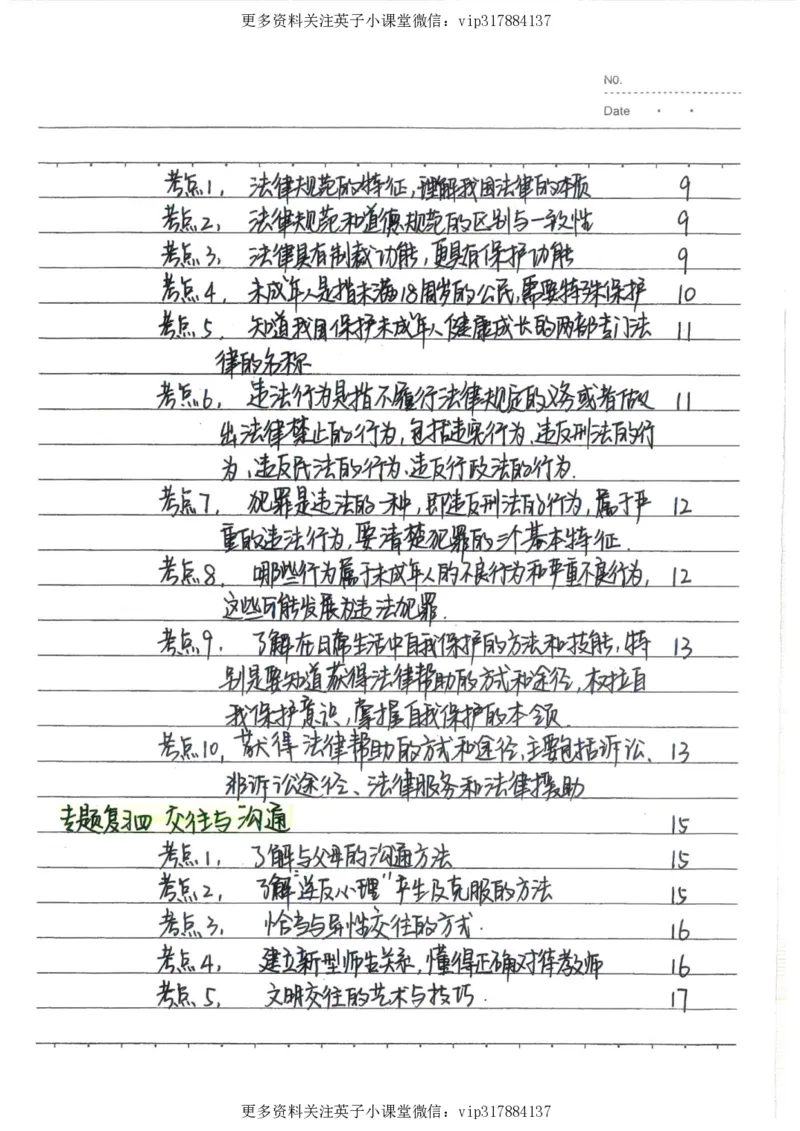 更多资料关注英子小课堂微信：vip317884137
No.
Date
考点1，法律规范的特征，理解我国法律的本质 9
考点2，法律规范和道德规范的区别与一致性 9
考点3，法律具有制裁功能，更具有保护功能 9
考点4，未成年人是指未满18周岁的公民，需要特殊保护 10
考点5，知道我国保护未成年人健康成长的两部专门法 11
律的名称
考点6，违法行为是指不履行法律规定的义务或者做 11
出法律禁止的行为，包括违宪行为、违反刑法的行
为、违反民法的行为、违反行政法的行为.
考点7，犯罪是违法的一种，即违反刑法的行为，属于严 12
重的违法行为，要清楚犯罪的三个基本特征.
考点8，哪些行为属于未成年人的不良行为和严重不良行为， 12
这些可能发展为违法犯罪.
考点9，了解在日常生活中自我保护的方法和技能，特 13
别是要知道获得法律帮助的方式和途径，树立自
我保护意识，掌握自我保护的本领.
考点10，获得法律帮助的方式和途径，主要包括诉讼、 13
非诉讼途径、法律服务和法律援助
专题复习四 交往与沟通 15
考点1，了解与父母的沟通方法 15
考点2，了解“逆反心理”产生及克服的方法 15
考点3，恰当与异性交往的方式. 16
考点4，建立新型师生关系，懂得正确对待教师 16
考点5，文明交往的艺术与技巧. 17
更多资料关注英子小课堂微信：vip317884137